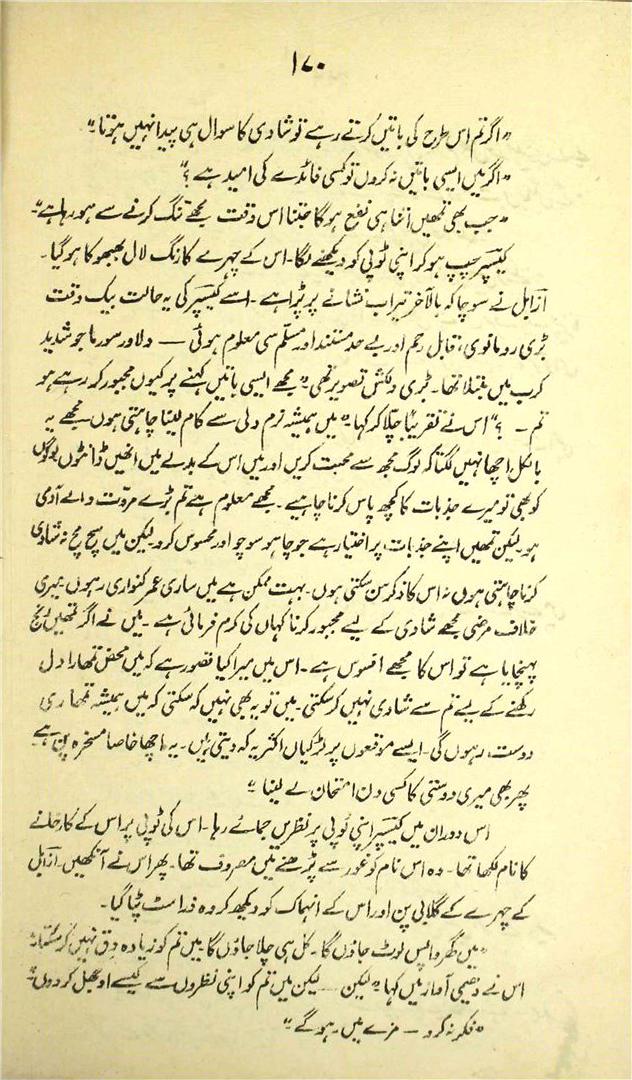 ۱۷۰
"اگر تم اس طرح کی باتیں کرتے رہے تو شادی کا سوال ہی پیدا نہیں ہوتا۔"
"اگر میں ایسی باتیں نہ کروں تو کسی فائدے کی امید ہے؟"
"جب بھی تمھیں اتنا ہی نفع ہو گا جتنا اس وقت مجھے تنگ کرنے سے ہو رہا ہے۔"
کیسپر چپ ہو کر اپنی ٹوپی کو دیکھنے لگا۔ اس کے چہرے کا رنگ لال بھبھوکا ہو گیا۔
ازابل نے سوچا کہ بالآخر تیر اب نشانے پر پڑا ہے۔ اسے کیسپر کی یہ حالت بیک وقت
بڑی رومانوی، قابل رحم اور بے حد مستند اور مسلّم سی معلوم ہوئی — دلاور سورما جو شدید
کرب میں مبتلا تھا۔ بڑی دلکش تصویر تھی۔ "مجھے ایسی باتیں کہنے پر کیوں مجبور کر رہے ہو
تم۔ ؟" اس نے تقریباً چلّا کر کہا۔ "میں ہمیشہ نرم دلی سے کام لینا چاہتی ہوں۔ مجھے یہ
بالکل اچھا نہیں لگتا کہ لوگ مجھ سے محبت کریں اور میں اس کے بدلے میں انھیں ڈانٹوں۔ لوگوں
کو بھی تو میرے جذبات کا کچھ پاس کرنا چاہیے۔ مجھے معلوم ہے تم بڑے مروّت والے آدمی
ہو لیکن تمھیں اپنے جذبات پر اختیار ہے جو چاہو سوچو اور محسوس کرو۔ لیکن میں سچ مچ نہ شادی
کرنا چاہتی ہوں نہ اس کا ذکر سن سکتی ہوں۔ بہت ممکن ہے میں ساری عمر کنواری رہوں۔ میری
خلاف مرضی مجھے شادی کے لیے مجبور کرنا کہاں کی کرم فرمائی ہے۔ میں نے اگر تمھیں رنج
پہنچایا ہے تو اس کا مجھے افسوس ہے۔ اس میں میرا کیا قصور ہے کہ میں محض تمھارا دل
رکھنے کے لیے تم سے شادی نہیں کر سکتی۔ میں تو یہ بھی نہیں کہ سکتی کہ میں ہمیشہ تمھاری
دوست رہوں گی۔ ایسے موقعوں پر لڑکیاں اکثر یہ کہ دیتی ہیں۔ یہ اچھا خاصا مسخرہ پن ہے
پھر بھی میری دوستی کا کسی دن امتحان لے لینا۔"
اس دوران میں کیسپر اپنی ٹوپی پر نظریں جمائے رہا۔ اس کی ٹوپی پر اس کے کارخانے
کا نام لکھا تھا۔ وہ اس نام کو غور سے پڑھنے میں مصروف تھا۔ پھر اس نے آنکھیں ازابل
کے چہرے کے گلابی پن اور اس کے انہماک کو دیکھ کر وہ ذرا سٹ پٹا گیا۔
"میں گھر واپس لوٹ جاؤں گا۔ کل ہی چلا جاؤں گا میں تم کو زیادہ دق نہیں کر سکتا۔"
اس نے دھیمی آواز میں کہا۔ "لیکن — لیکن میں تم کو اپنی نظروں سے کیسے اوجھل کر دوں۔"
"فکر نہ کرو — مزے میں رہو گے۔"